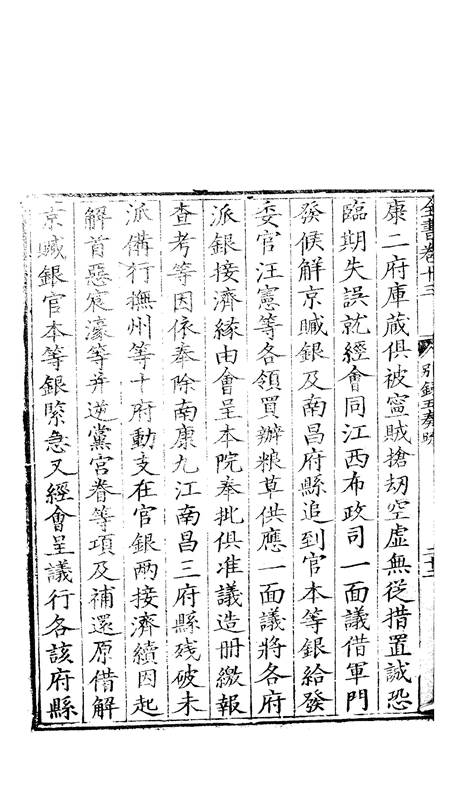 全書卷十三 別錄五奏疏 二十二
康二府庫藏俱被寧賊搶劫空虛無從措置誠恐
臨期失誤就經會同江西布政司一面議借軍門
發候解京贓銀及南昌府縣追到官本等銀給發
委官汪憲等各領買辦粮草供應一面議將各府
派銀接濟緣由會呈本院奉批俱准議造冊繳報
查考等因依奉除南康九江南昌三府縣殘破未
派備行撫州等十府動支在官銀兩接濟續因起
解首惡宸濠等并逆黨官眷等項及補還原借解
京贓銀官本等銀緊急又經會呈議行各該府縣